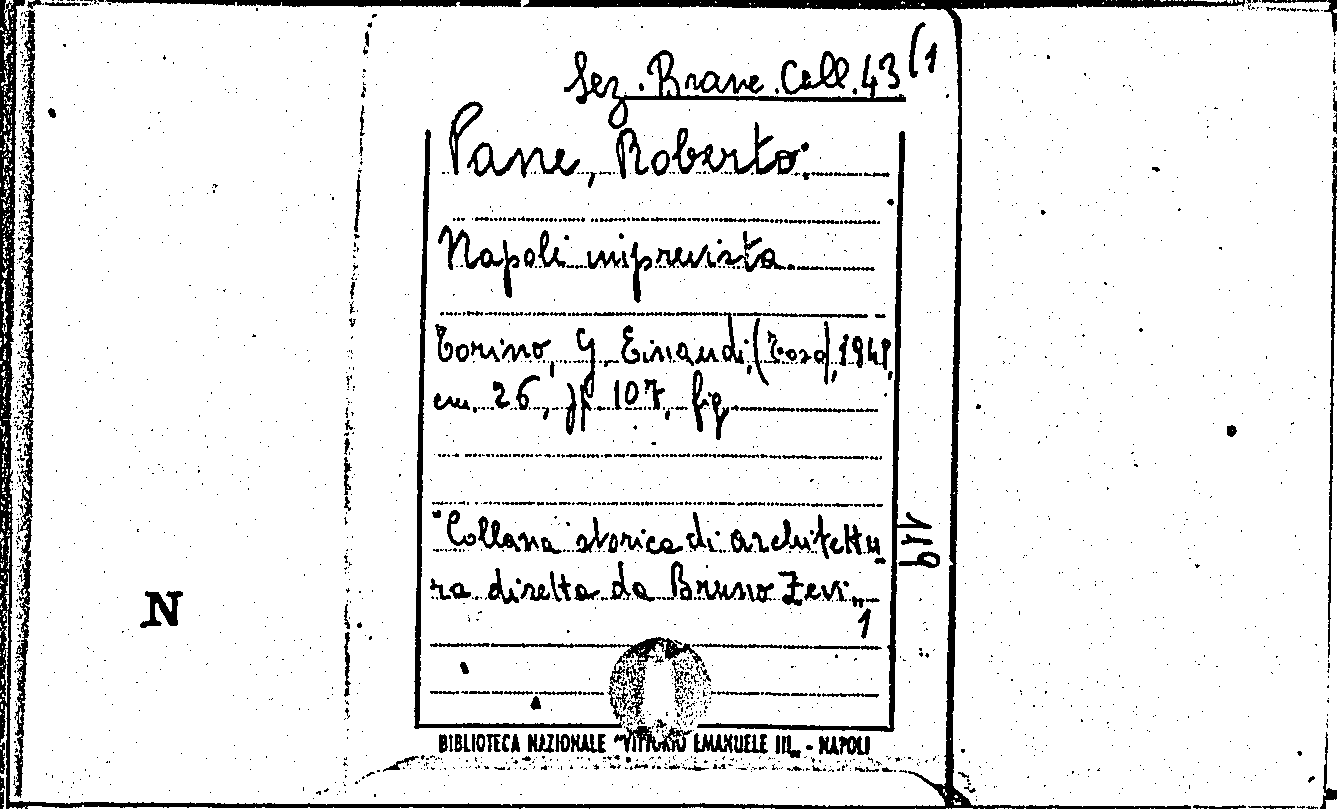 Sez. Brane. Coll. 43 (1
Pane, Roberto:
Napoli imprevista.
Torino, G. Einaudi, (Toso), 1949,
cm. 26, pp. 107, fig.
"Collana storica di architettu-
ra diretta da Bruno Zevi„
1
N
BIBLIOTECA NAZIONALE "VITTORIO EMANUELE III„ - NAPOLI